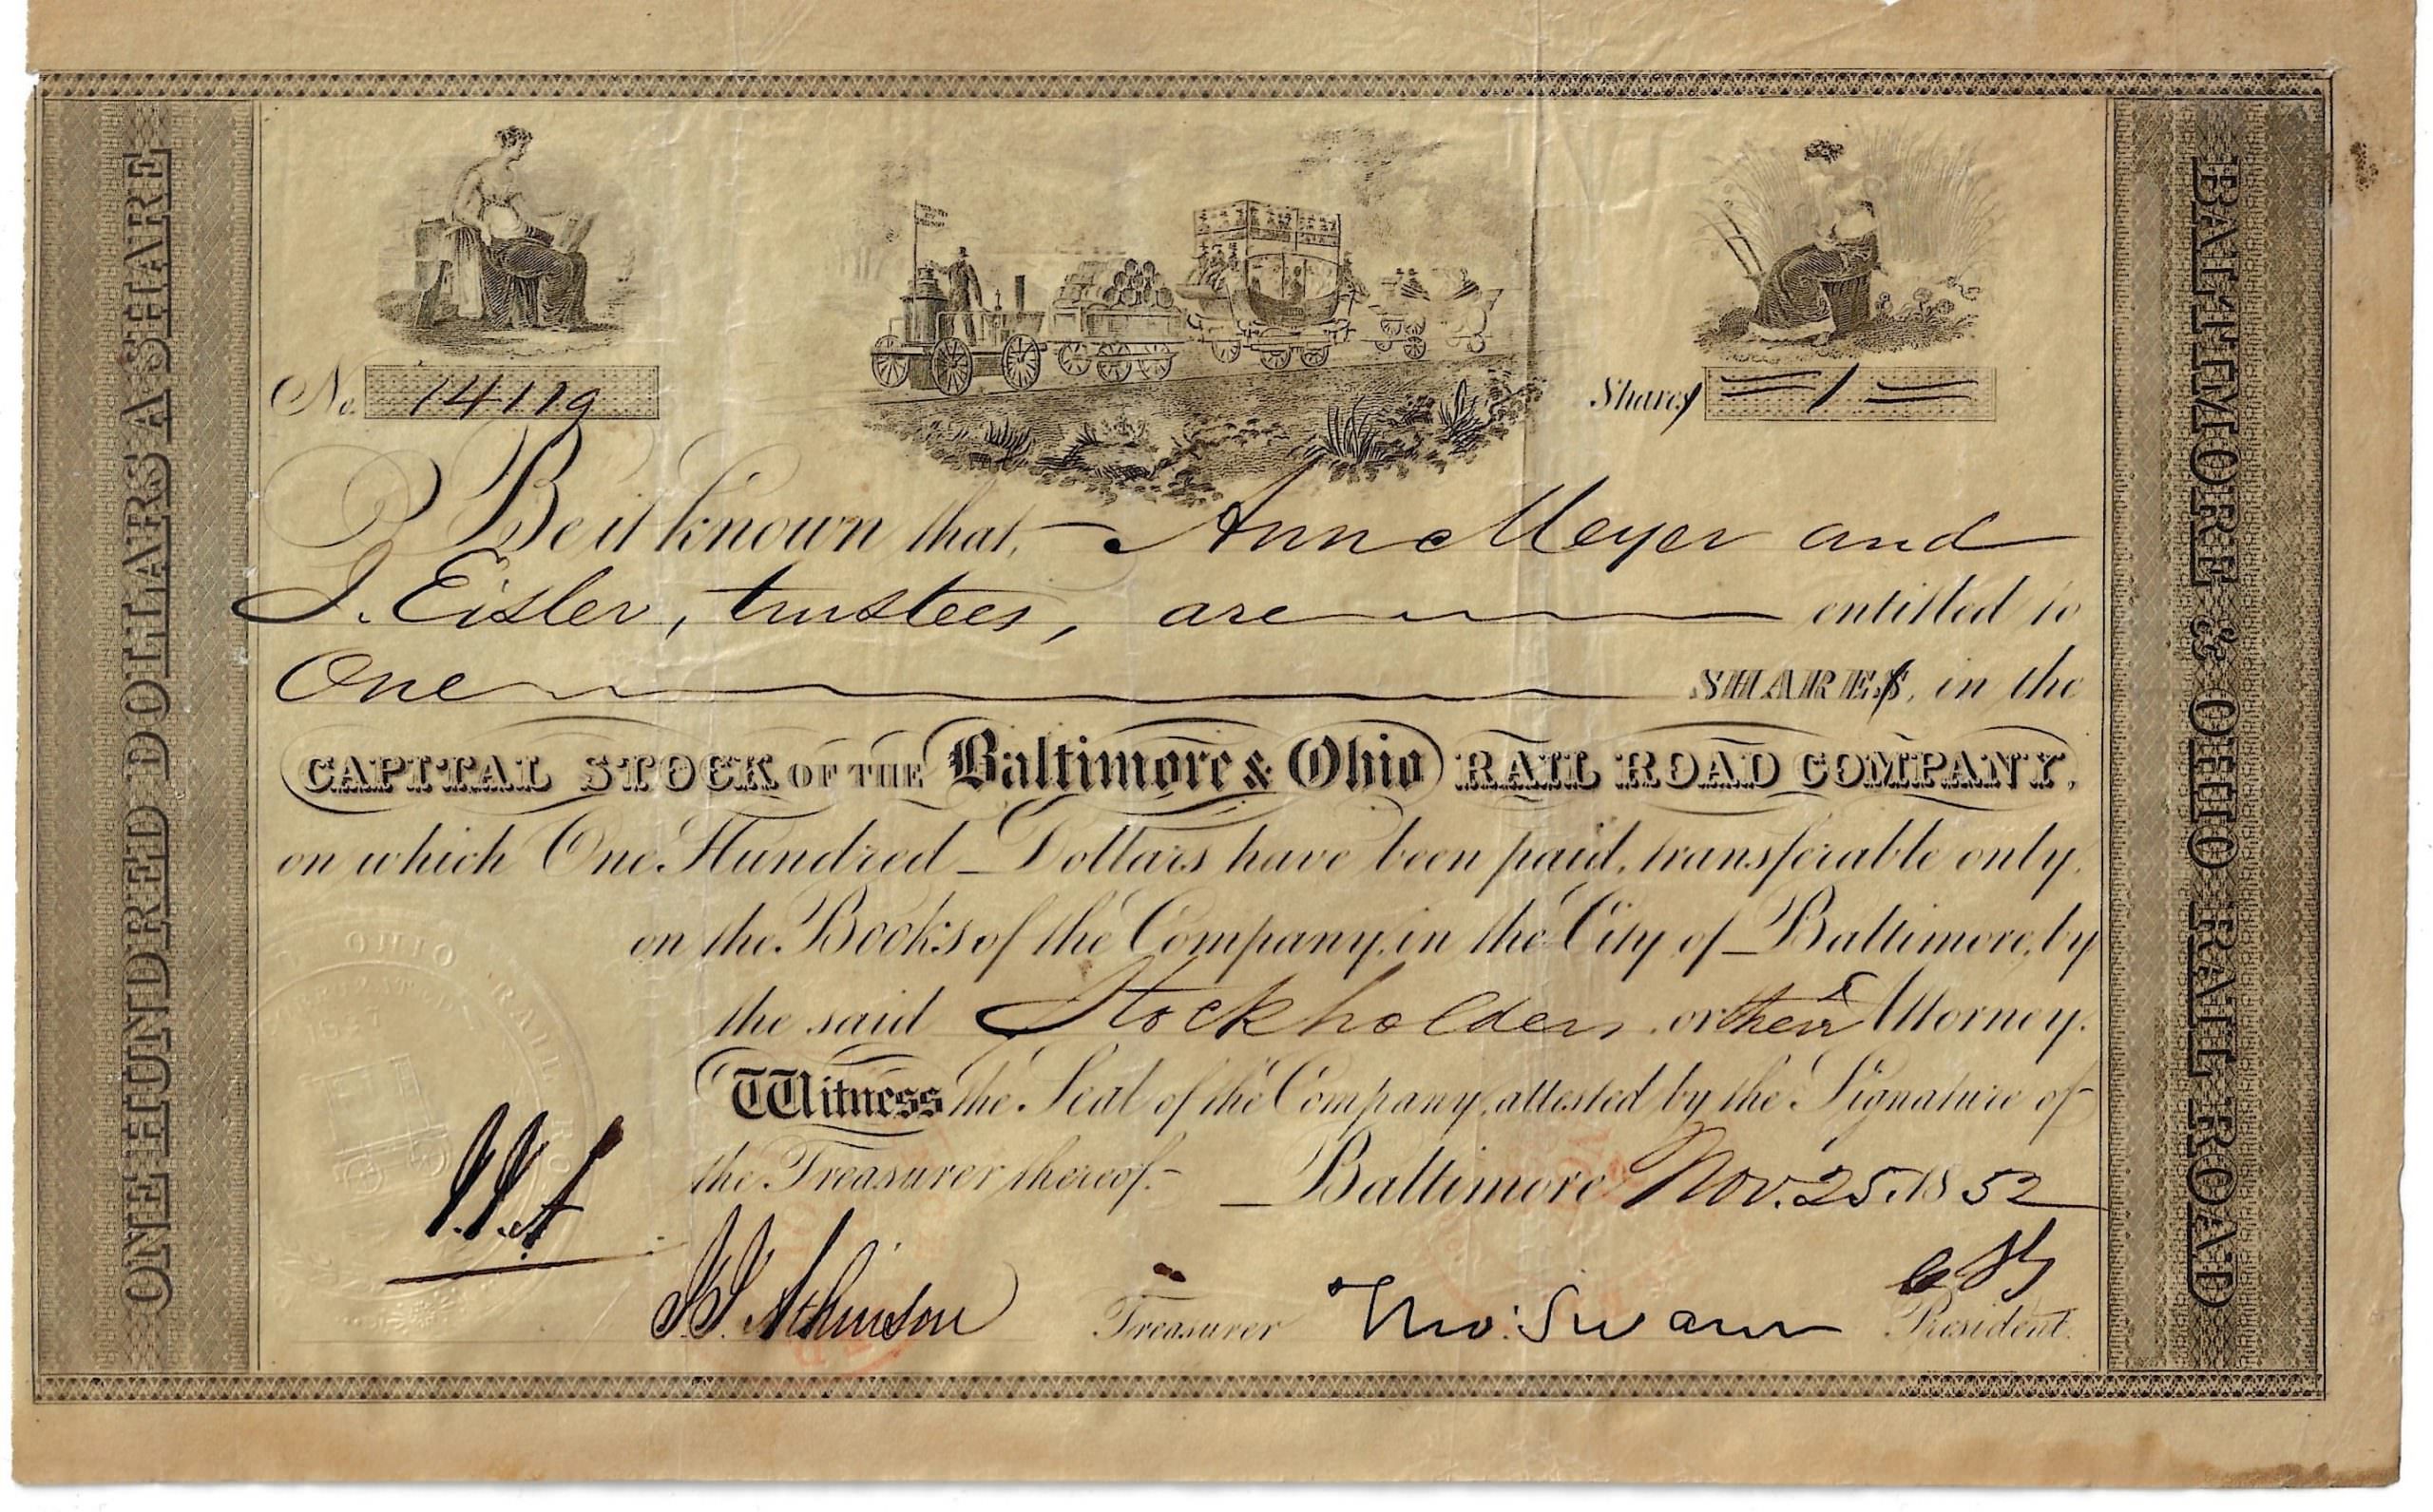 ONE HUNDRED DOLLARS A SHARE
No. 14119
Shares = 1 =
Be it known that, Ann Meyer and
J. Eisler, trustees, are entitled to
One SHARES, in the
CAPITAL STOCK OF THE Baltimore & Ohio RAIL ROAD COMPANY,
on which One Hundred Dollars have been paid, transferable only
on the Books of the Company, in the City of Baltimore, by
the said Stockholders or their Attorney.
Witness the Seal of the Company, attested by the Signature of
the Treasurer thereof. Baltimore Nov. 25. 1852
J.J.A.
J.J. Atkinson Treasurer Tho: Swann President.
OHIO RAIL RO
1827
BALTIMORE & OHIO RAIL ROAD